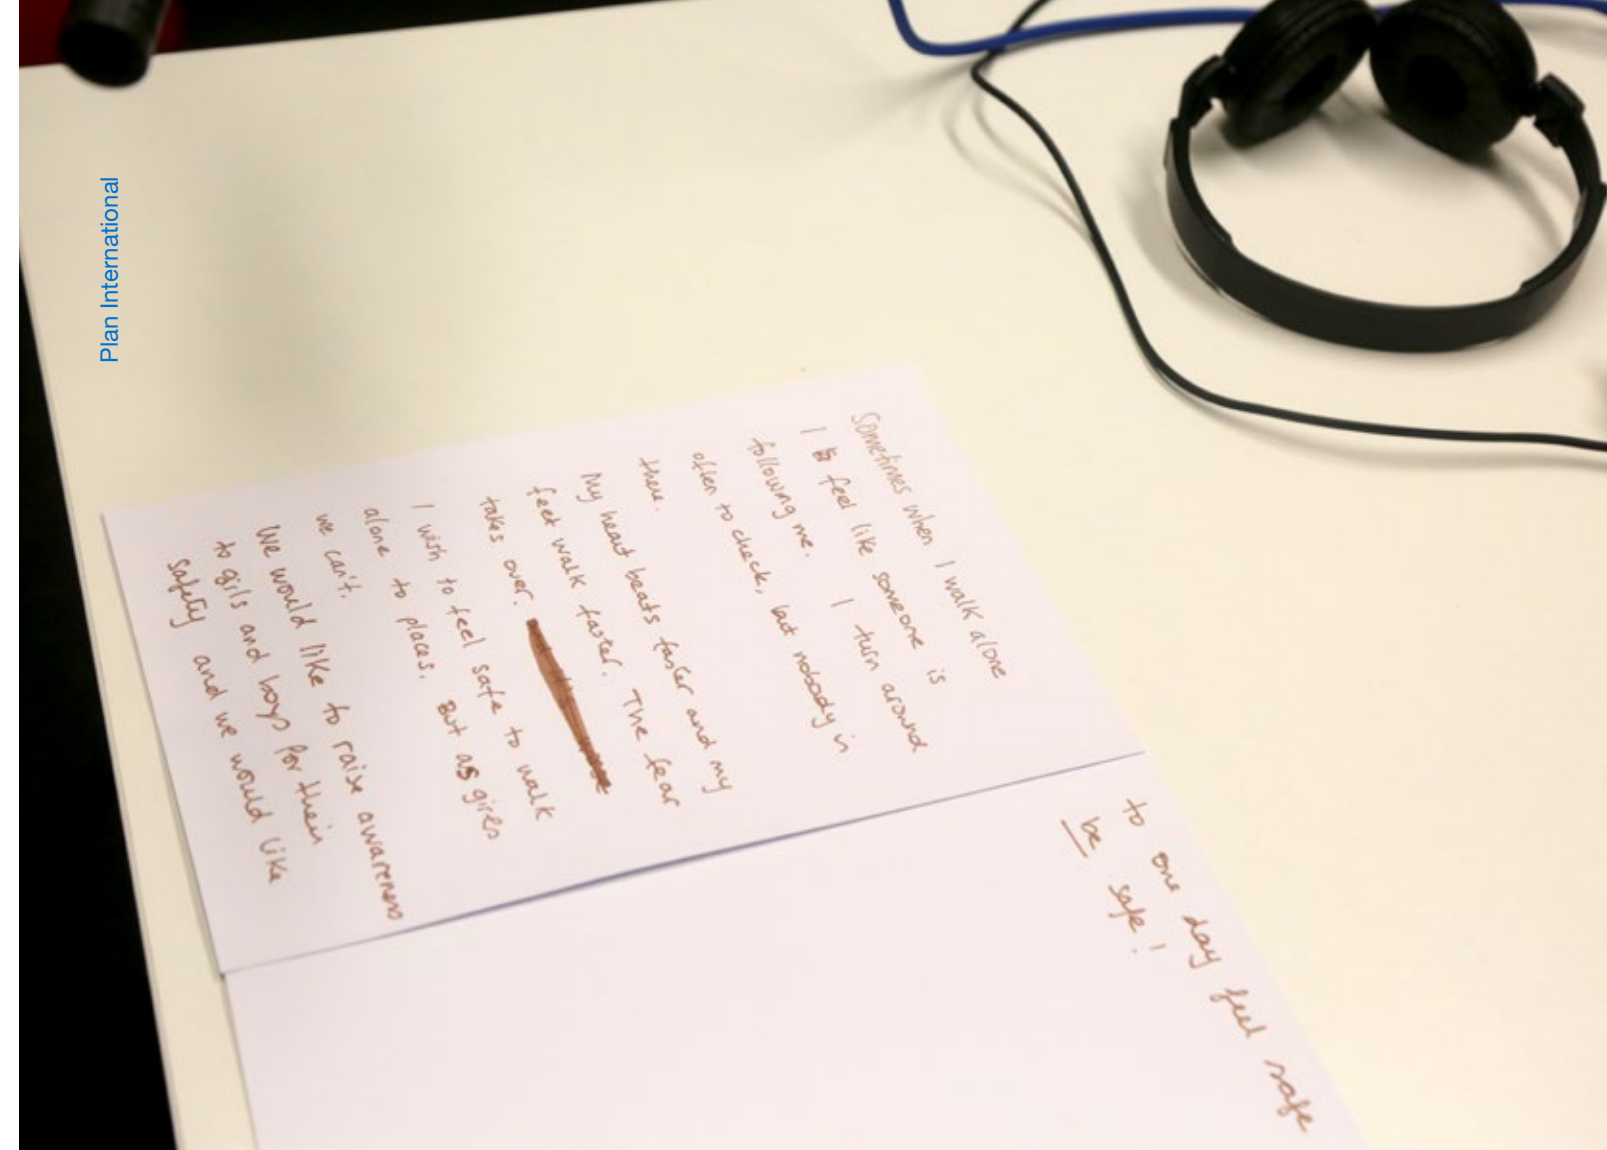 Plan International
Sometimes when I walk alone
I feel like someone is
following me. I turn around
often to check, but nobody is
there.
My heart beats faster and my
feet walk faster. The fear
takes over.
I wish to feel safe to walk
alone to places. But as girls
we can't.
We would like to raise awareness
to girls and boys for their
safety and we would like
to one day feel safe
be safe!